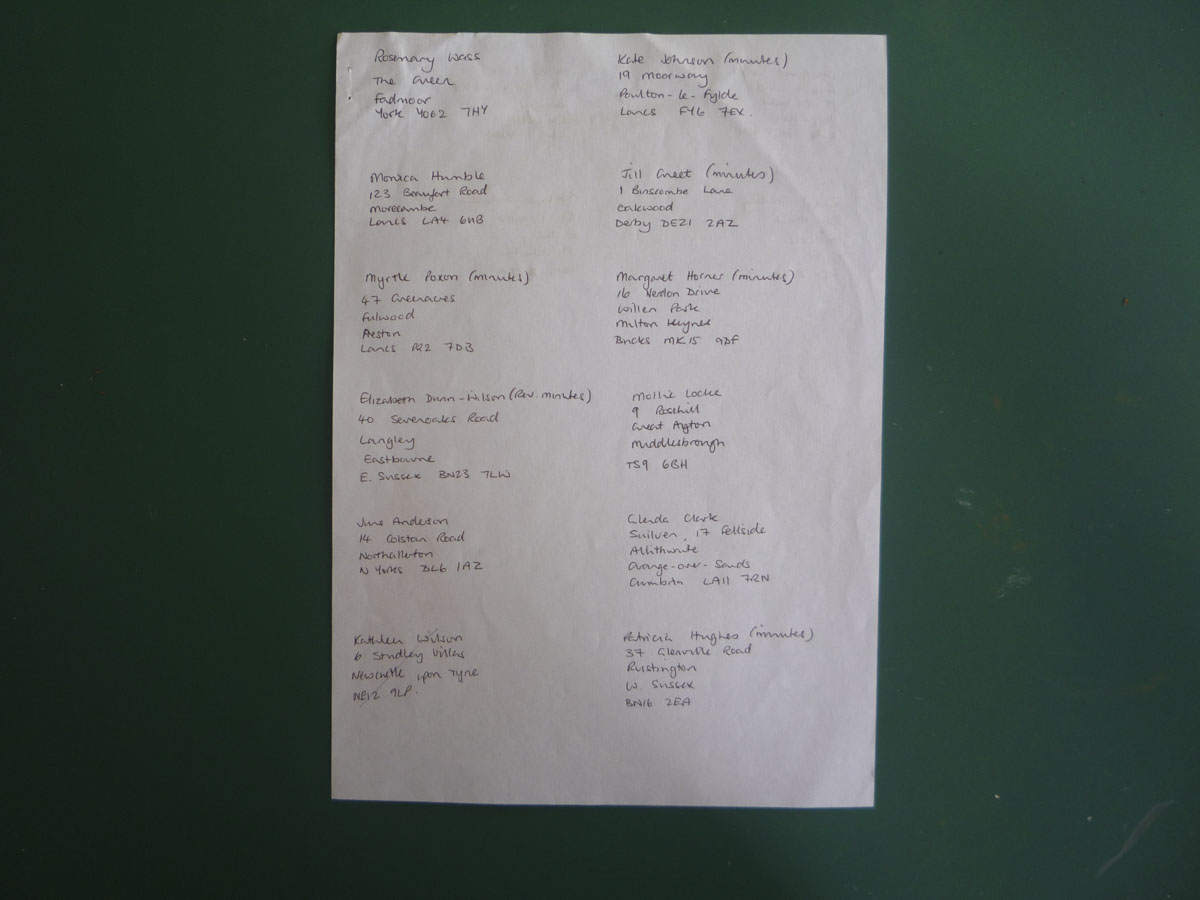 Rosemary Wass
The Green
Fadmoor
York YO62 7HY
Kate Johnson (minutes)
19 Moorway
Poulton-le-Fylde
Lancs FY6 7EX.
Monica Humble
123 Beaufort Road
Morecambe
Lancs LA4 6UB
Jill Greet (minutes)
1 Binscombe Lane
Oakwood
Derby DE21 2AZ
Myrtle Poxon (minutes)
47 Greenacres
Fulwood
Preston
Lancs PR2 7DB
Margaret Horner (minutes)
16 Drive
Willen Park
Milton Keynes
Bucks MK15 9DF
Elizabeth Dunn-Wilson (Rev. minutes)
40 Sevenoaks Road
Langley
Eastbourne
E. Sussex BN23 7LW
Mollie Locke
9 Rosehill
Great Ayton
Middlesbrough
TS9 6BH
June Anderson
14 Colstan Road
Northallerton
N Yorks DL6 1AZ
Glenda Clark
Suilven, 17 Fellside
Allithwaite
Grange-over-Sands
Cumbria LA11 7RN
Kathleen Wilson
6 Studley Villas
Newcastle upon Tyne
NE12 9LP.
Patricia Hughes (minutes)
37 Glenville Road
Rustington
W. Sussex
BN16 2EA